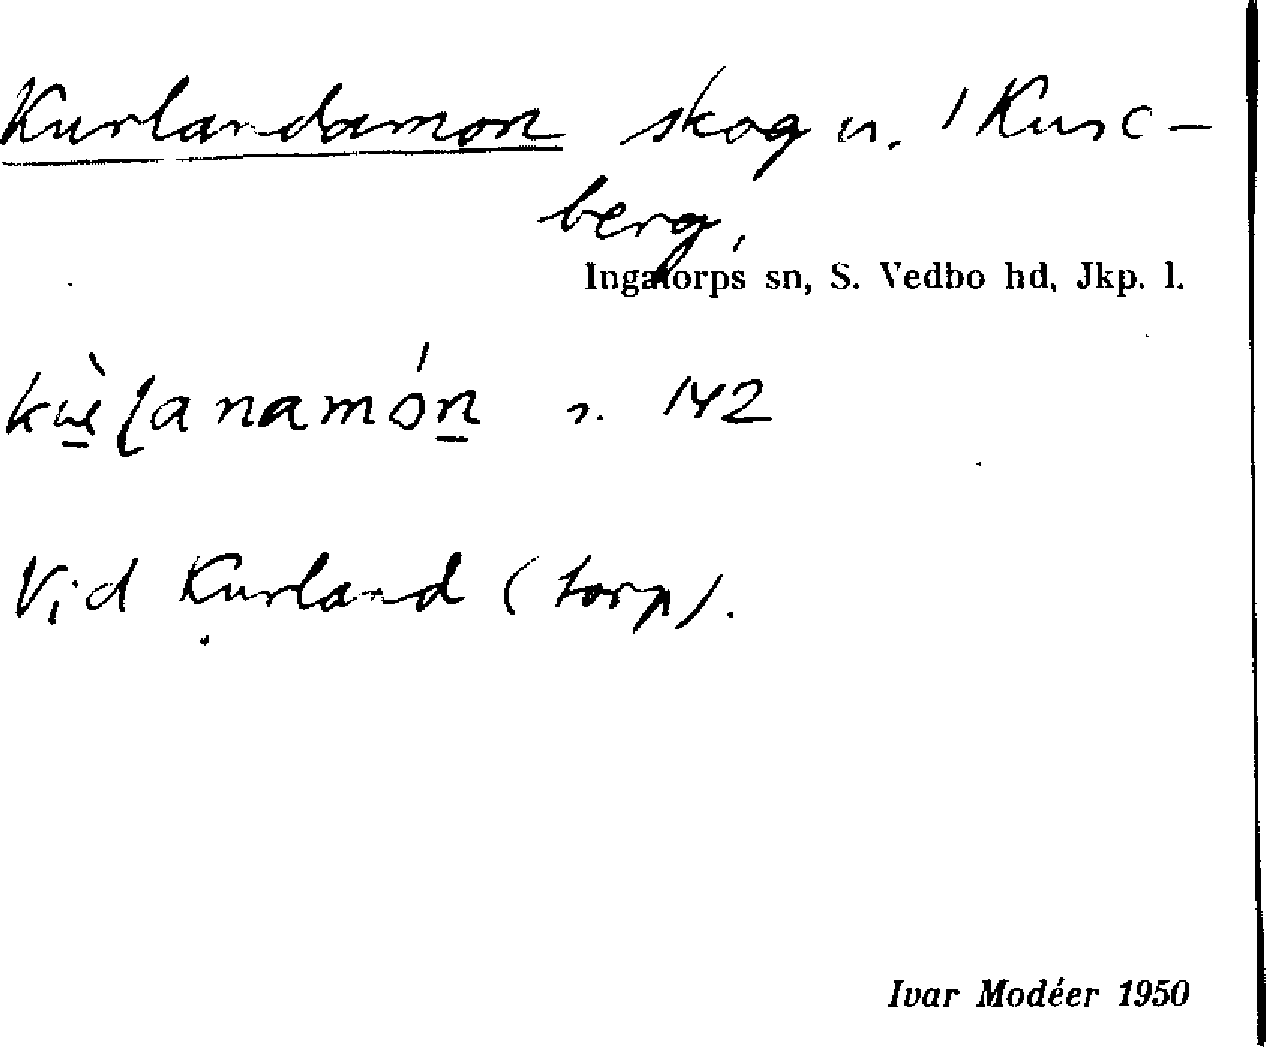 Kurlandamon skog n. 1 Kuse-
berg,
Ingatorps sn, S. Vedbo hd, Jkp. l.
s. 142
Vid Kurland (torp).
Ivar Modéer 1950